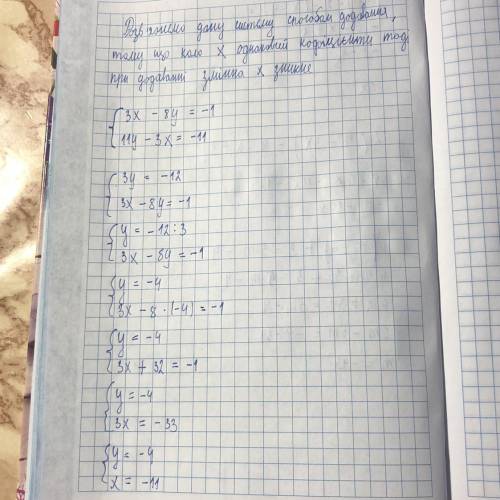 Розв'яжемо дану систему способом додавання,
тому що коло x однакові коефіцієнти тоді
при додаванні змінна x зникне
3x - 8y = -1
11y - 3x = -11
3y = -12
3x - 8y = -1
y = -12 : 3
3x - 8y = -1
y = -4
3x - 8 · (-4) = -1
y = -4
3x + 32 = -1
y = -4
3x = -33
y = -4
x = -11